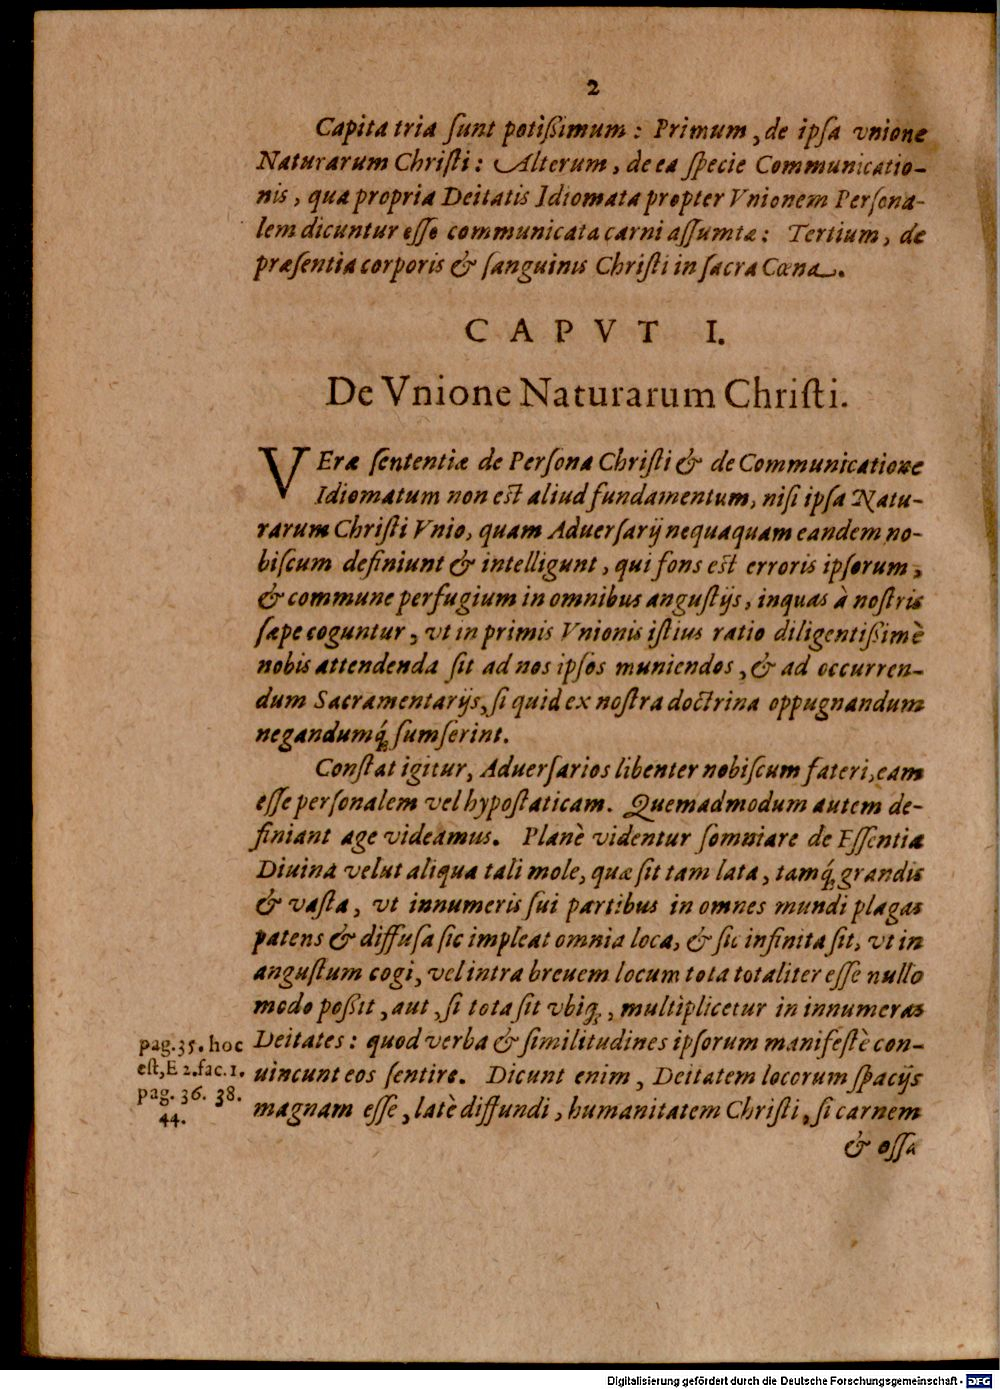 2
Capita tria ſunt potißimum : Primum, de ipſa vnione
Naturarum Chriſti : Alterum, de ea ſpecie Communicatio-
nis, qua propria Deitatis Idiomata propter Vnionem Perſona-
lem dicuntur eſſe communicata carni aſſumtæ : Tertium, de
præſentia corporis & ſanguinis Chriſti in ſacra Cœna.
CAPVT I.
De Vnione Naturarum Chriſti.
VEræ ſententiæ de Perſona Chriſti & de Communicatione
Idiomatum non est aliud fundamentum, niſi ipſa Natu-
rarum Chriſti Vnio, quam Aduerſarij nequaquam eandem no-
biſcum definiunt & intelligunt, qui fons est erroris ipſorum,
& commune perfugium in omnibus anguſtijs, in quas à noſtris
ſæpe coguntur, vt in primis Vnionis iſtius ratio diligentißimè
nobis attendenda ſit ad nos ipſos muniendos, & ad occurren-
dum Sacramentarijs, ſi quid ex noſtra doctrina oppugnandum
negandumq́; ſumſerint.
Conſtat igitur, Aduerſarios libenter nobiſcum fateri, eam
eſſe perſonalem vel hypoſtaticam. Quemadmodum autem de-
finiant age videamus. Planè videntur ſomniare de Eſſentia
Diuina velut aliqua tali mole, quæ ſit tam lata, tamq́; grandis
& vaſta, vt innumeris ſui partibus in omnes mundi plagas
patens & diffuſa ſic impleat omnia loca, & ſic infinita ſit, vt in
anguſtum cogi, vel intra breuem locum tota totaliter eſſe nullo
modo poßit, aut, ſi tota ſit vbiq;, multiplicetur in innumeras
Deitates : quod verba & ſimilitudines ipſorum manifeſtè con-
uincunt eos ſentire. Dicunt enim, Deitatem locorum ſpacijs
magnam eſſe, latè diffundi, humanitatem Chriſti, ſi carnem
& oſſa
pag. 35. hoc
eſt, E 2. fac. 1.
pag. 36. 38.
44.
Digitalisierung gefördert durch die Deutsche Forschungsgemeinschaft - DFG